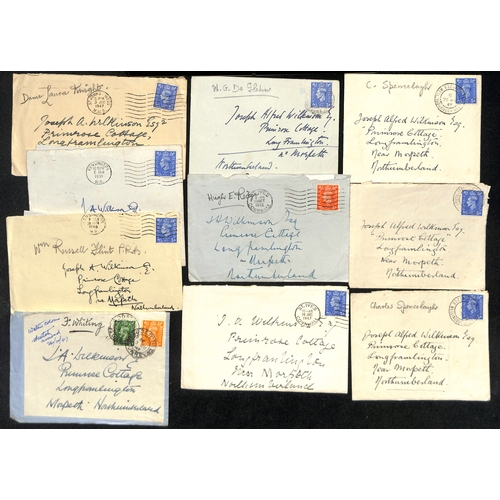 Dame Laura Knight
Joseph A. Wilkinson Esqre
Primrose Cottage,
Longframlington
J A Wilkinson Esq
Wm Russell Flint P.R.A.
Joseph A. Wilkinson E.
Primrose Cottage
Longframlington
Nr Morpeth
Northumberland
F. Whiting
J A Wilkinson
Primrose Cottage
Longframlington
Morpeth Northumberland
W. G. De Glehn
Joseph Alfred Wilkinson Esq
Primrose Cottage
Longframlington
nr Morpeth
Northumberland.
Hugh E
J A Wilkinson Esq
Primrose Cottage
Longframlington
Morpeth
Northumberland
J. A. Wilkinson Esq
Primrose Cottage
Longframlington
Near Morpeth
Northumberland
C. Spencelayh
Joseph Alfred Wilkinson Esq.
"Primrose Cottage.
Longframlington.
Near Morpeth
Northumberland
Joseph Alfred Wilkinson Esq
Primrose Cottage
Longframlington
Near Morpeth
Northumberland
Charles Spencelayh
Joseph Alfred Wilkinson Esq
Primrose Cottage
Longframlington
Near Morpeth
Northumberland